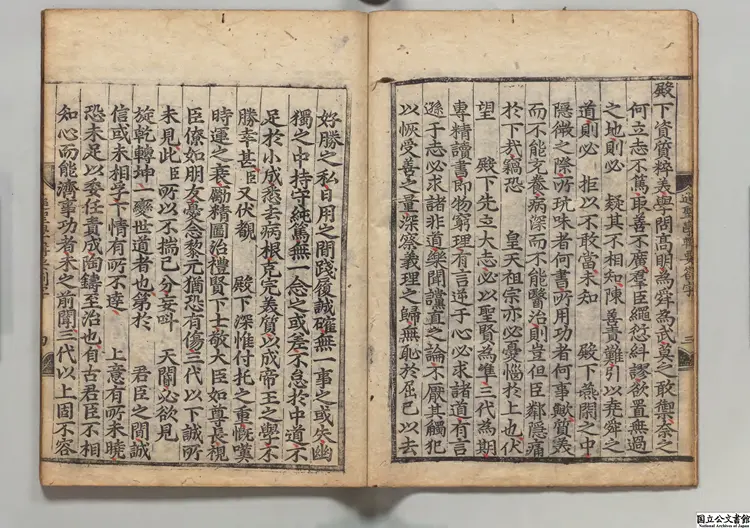 殿下資質粹美學問高明為舜為武莫之敢禦奈之
何立志不篤取善不廣羣臣繩愆糾謬欲置無過
之地則必 疑其不相知陳善責難引以堯舜之
道則必 拒以不敢當未知 殿下燕閒之中
隱微之際所玩味者何書所用功者何事歟質美
而不能充養病深而不能醫治則豈但臣鄰隱痛
於下哉竊恐 皇天祖宗亦必憂惱於上也伏
望 殿下先立大志必以聖賢為準三代為期
專精讀書即物窮理有言逆于心必求諸道有言
遜于志必求諸非道樂聞讜直之論不厭其觸犯
以恢受善之量深察義理之歸無恥於屈己以去
好勝之私日用之間踐履誠確無一事之或失幽
獨之中持守純篤無一念之或差不怠於中道不
足於小成悉去病根克完美質以成帝王之學不
勝幸甚臣又伏觀 殿下深惟付托之重慨嘆
時運之衰勵精圖治禮賢下士敬大臣如尊長視
臣僚如朋友憂念黎元猶恐有傷三代以下誠所
未見此臣所以不揣己分妄叫 天閽必欲見
旋乾轉坤一變世道者也第於 君臣之間誠
信或未相孚下情有所不達 上意有所未曉
恐未足以委任責成陶鑄至治也自古君臣不相
知心而能濟事功者未之前聞三代以上固不容
三
四
国立公文書館
National Archives of Japan